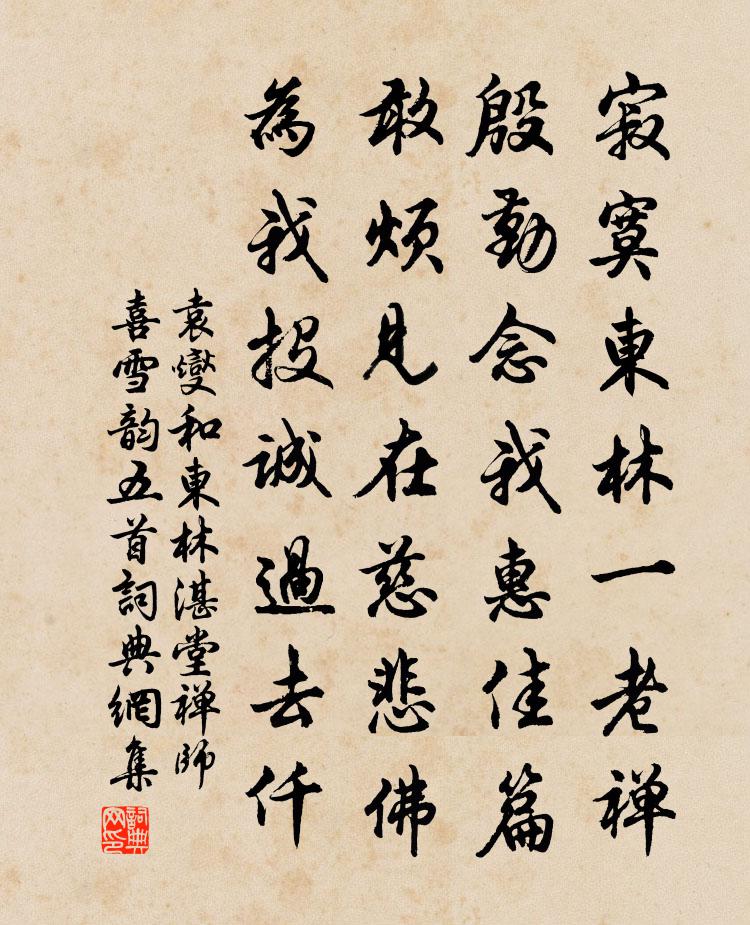 寂寞東林一老禅
殷勤念我惠佳篇
敢烦見在慈悲佛
為我投誠過去仟
袁燮和東林湛堂禅師
喜雪韵五首詞典網集
詞典网印